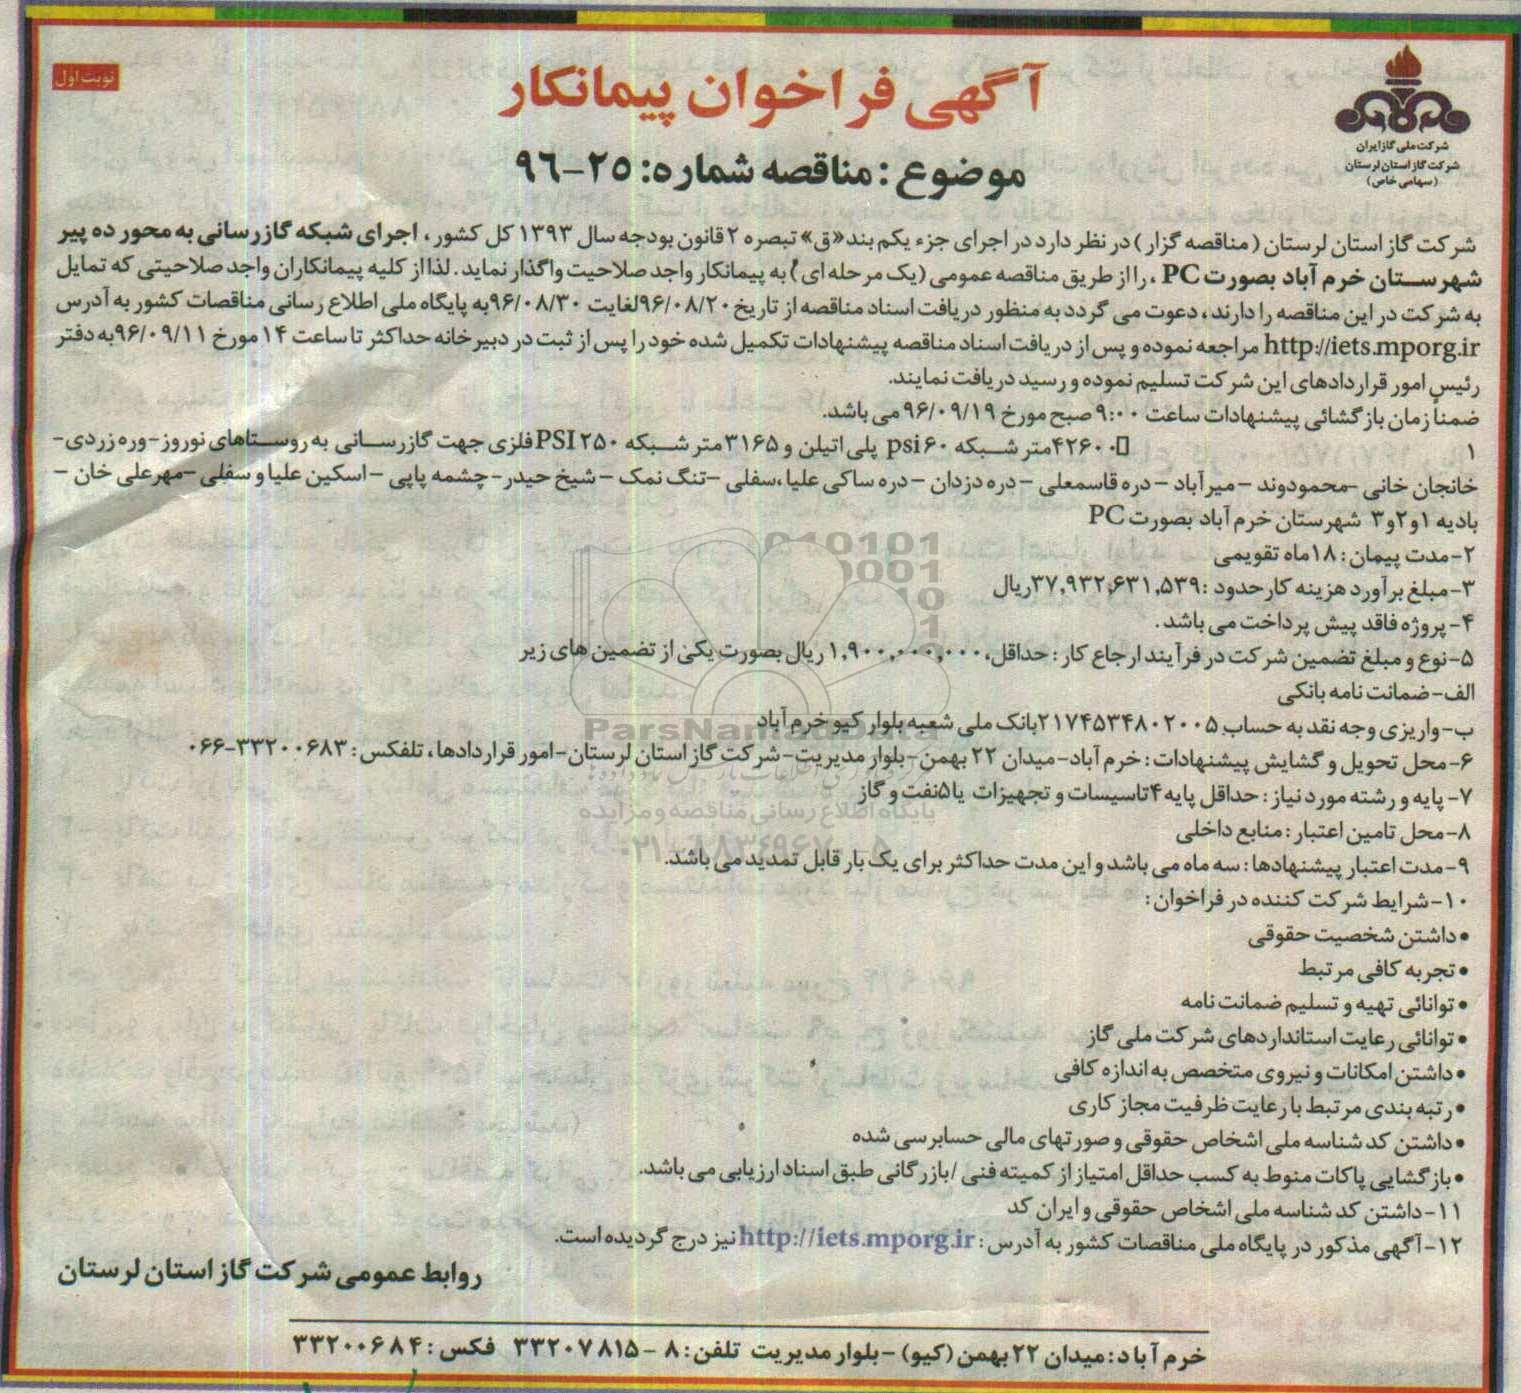 نوبت اول
شرکت ملی گاز ایران
شرکت گاز استان لرستان
(سهامی خاص)
آگهی فراخوان پیمانکار
موضوع : مناقصه شماره: ۲۵-۹۶
شرکت گاز استان لرستان ( مناقصه گزار ) در نظر دارد در اجرای جزء یکم بند «ق» تبصره ۲ قانون بودجه سال ۱۳۹۳ کل کشور ، اجرای شبکه گازرسانی به محور ده پیر
شهرستان خرم آباد بصورت PC ، را از طریق مناقصه عمومی (یک مرحله ای) به پیمانکار واجد صلاحیت واگذار نماید. لذا از کلیه پیمانکاران واجد صلاحیتی که تمایل
به شرکت در این مناقصه را دارند ، دعوت می گردد به منظور دریافت اسناد مناقصه از تاریخ ۹۶/۰۸/۲۰ لغایت ۹۶/۰۸/۳۰ به پایگاه ملی اطلاع رسانی مناقصات کشور به آدرس
http://iets.mporg.ir مراجعه نموده و پس از دریافت اسناد مناقصه پیشنهادات تکمیل شده خود را پس از ثبت در دبیرخانه حداکثر تا ساعت ۱۴ مورخ ۹۶/۰۹/۱۱ به دفتر
رئیس امور قراردادهای این شرکت تسلیم نموده و رسید دریافت نمایند.
ضمناً زمان بازگشائی پیشنهادات ساعت ۹:۰۰ صبح مورخ ۹۶/۰۹/۱۹ می باشد.
۱ ۴۲۶۰۰ متر شبکه psi ۶۰ پلی اتیلن و ۳۱۶۵ متر شبکه PSI ۲۵۰ فلزی جهت گازرسانی به روستاهای نوروز-وره زردی-
خانجان خانی -محمودوند -میرآباد - دره قاسمعلی - دره دزدان - دره ساکی علیا ،سفلی -تنگ نمک - شیخ حیدر- چشمه پاپی -اسکین علیا و سفلی -مهرعلی خان -
بادیه ۱و۲و۳ شهرستان خرم آباد بصورت PC
۲-مدت پیمان : ۱۸ماه تقویمی
۳-مبلغ برآورد هزینه کار حدود : ۳۷,۹۳۲,۶۳۱,۵۳۹ریال
۴- پروژه فاقد پیش پرداخت می باشد .
۵-نوع و مبلغ تضمین شرکت در فرآیند ارجاع کار : حداقل، ۱,۹۰۰,۰۰۰,۰۰۰ ریال بصورت یکی از تضمین های زیر
الف-ضمانت نامه بانکی
ب-واریزی وجه نقد به حساب ۲۱۷۴۵۳۴۸۰۲۰۰۵ بانک ملی شعبه بلوار کیو خرم آباد
۶-محل تحویل و گشایش پیشنهادات : خرم آباد-میدان ۲۲ بهمن-بلوار مدیریت-شرکت گاز استان لرستان-امور قراردادها ، تلفکس : ۳۳۲۰۰۶۸۳-۰۶۶
۷- پایه و رشته مورد نیاز : حداقل پایه ۴تاسیسات و تجهیزات یا ۵نفت و گاز
۸-محل تامین اعتبار : منابع داخلی
۹-مدت اعتبار پیشنهادها : سه ماه می باشد و این مدت حداکثر برای یک بار قابل تمدید می باشد.
۱۰-شرایط شرکت کننده در فراخوان :
• داشتن شخصیت حقوقی
• تجربه کافی مرتبط
• توانائی تهیه و تسلیم ضمانت نامه
• توانائی رعایت استانداردهای شرکت ملی گاز
• داشتن امکانات و نیروی متخصص به اندازه کافی
• رتبه بندی مرتبط با رعایت ظرفیت مجاز کاری
• داشتن کد شناسه ملی اشخاص حقوقی و صورتهای مالی حسابرسی شده
• بازگشایی پاکات منوط به کسب حداقل امتیاز از کمیته فنی /بازرگانی طبق اسناد ارزیابی می باشد.
۱۱-داشتن کد شناسه ملی اشخاص حقوقی و ایران کد
۱۲-آگهی مذکور در پایگاه ملی مناقصات کشور به آدرس : http://iets.mporg.ir نیز درج گردیده است.
روابط عمومی شرکت گاز استان لرستان
خرم آباد: میدان ۲۲ بهمن (کیو) -بلوار مدیریت تلفن: ۸ -۳۳۲۰۷۸۱۵ فکس : ۳۳۲۰۰۶۸۴
ParsNamadData
پایگاه اطلاع رسانی مناقصه و مزایده